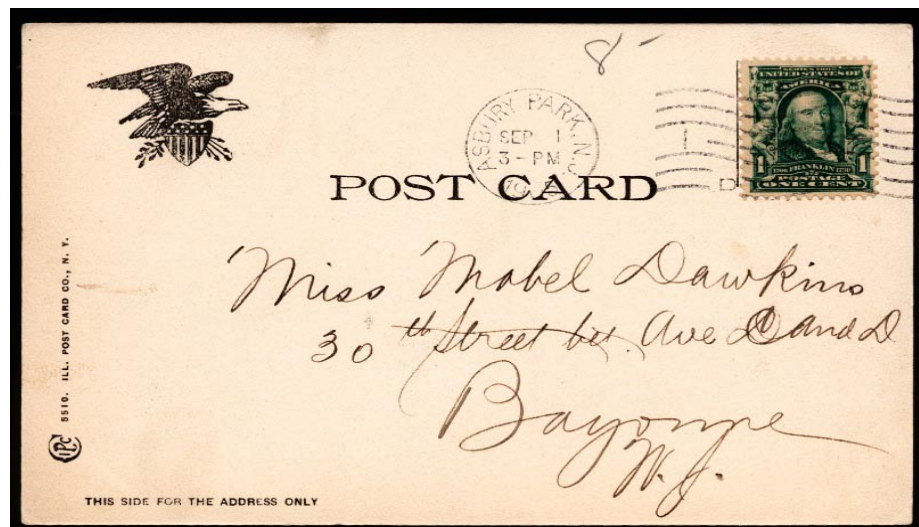 8-
ASBURY PARK, N.J.
SEP 1
3-PM
SERIES 1902
UNITED STATES OF
AMERICA
1 1706 FRANKLIN 1790 1
POSTAGE
ONE CENT
POST CARD
Miss Mabel Dawkins
30th Street bet. Ave C and D
Bayonne
N. J.
5510. ILL. POST CARD CO., N. Y.
IPC
THIS SIDE FOR THE ADDRESS ONLY